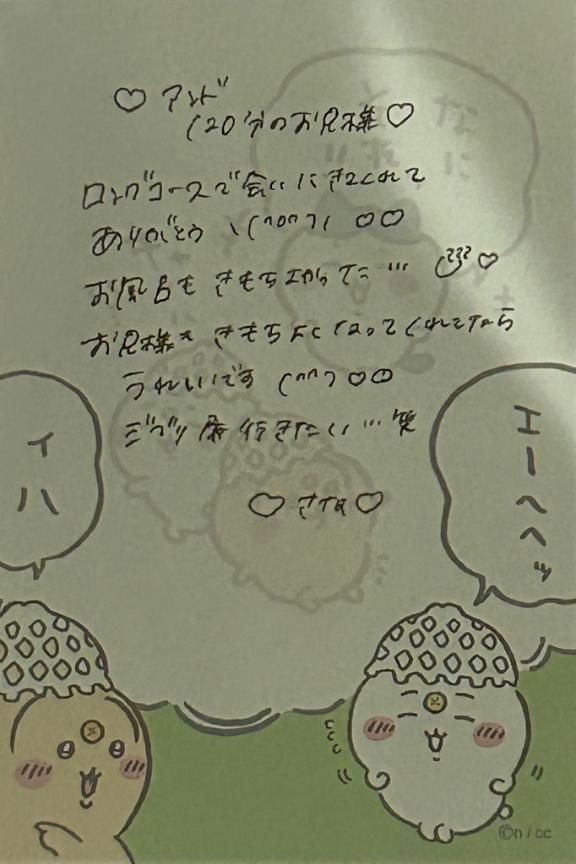 ♡ アンド
120分のお兄様♡
ロングコースで会いにきてくれて
ありがとう \(^o^)/ ♡♡
お風呂もきもちよかってた… ♡
お兄様もきもちよくなってくれてたら
うれしいです (^^) ♡♡
行きたい…笑
♡ ♡
イ
ハ
エーへへッ
なに
©n/cc